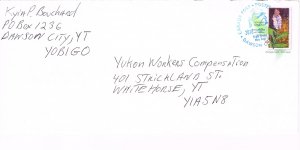 Kyin P. Bouchard
PO Box 1236
Dawson City, YT
Y0B1G0
Yukon Workers Compensation
401 Strickland St.
Whitehorse, YT
Y1A5N8